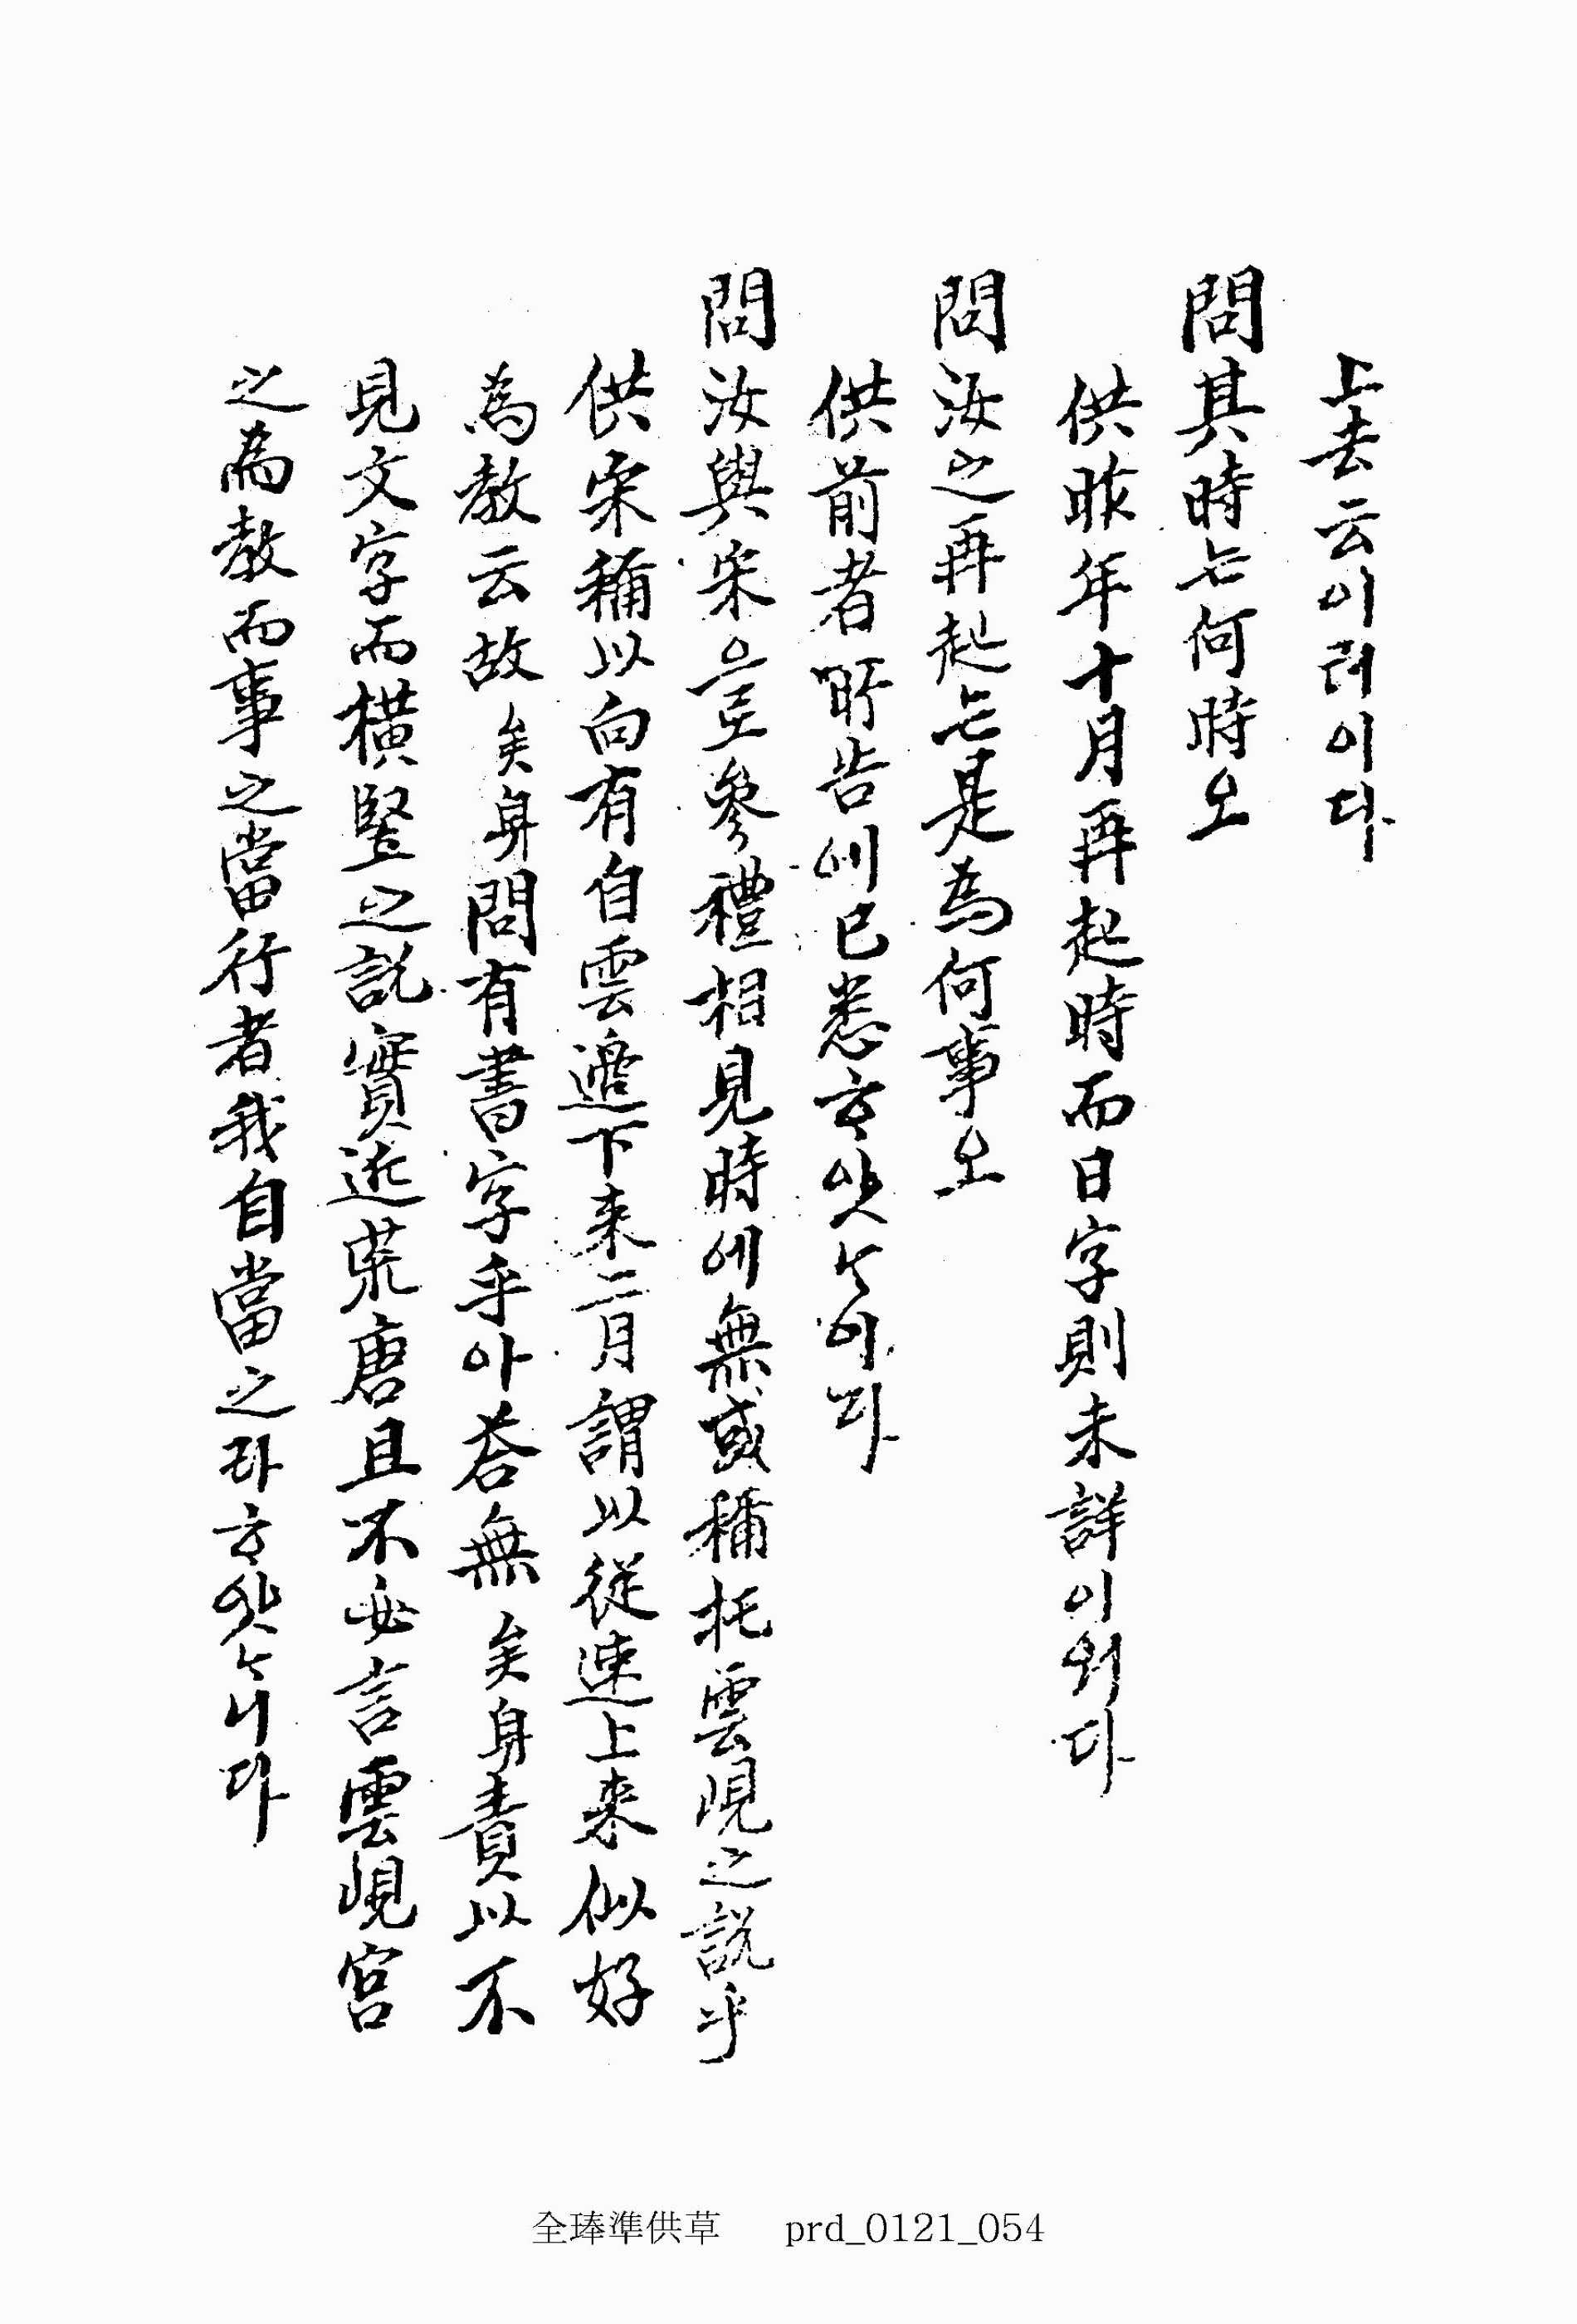 上去云이러이다
問其時는何時오
供昨年十月再起時而日字則未詳이외다
問汝之再起는是為何事오
供前者所告에已悉하얏느이다
問汝與宋으로參禮相見時에無或稱托雲峴之說乎
供宋稱以向有自雲邊下来二月謂以從速上来似好
為教云故矣身問有書字乎아答無矣身責以不
見文字而橫竪之說實近荒唐且不必言雲峴宮
之為教而事之當行者我自當之라하얏느니다
全琫準供草 prd_0121_054